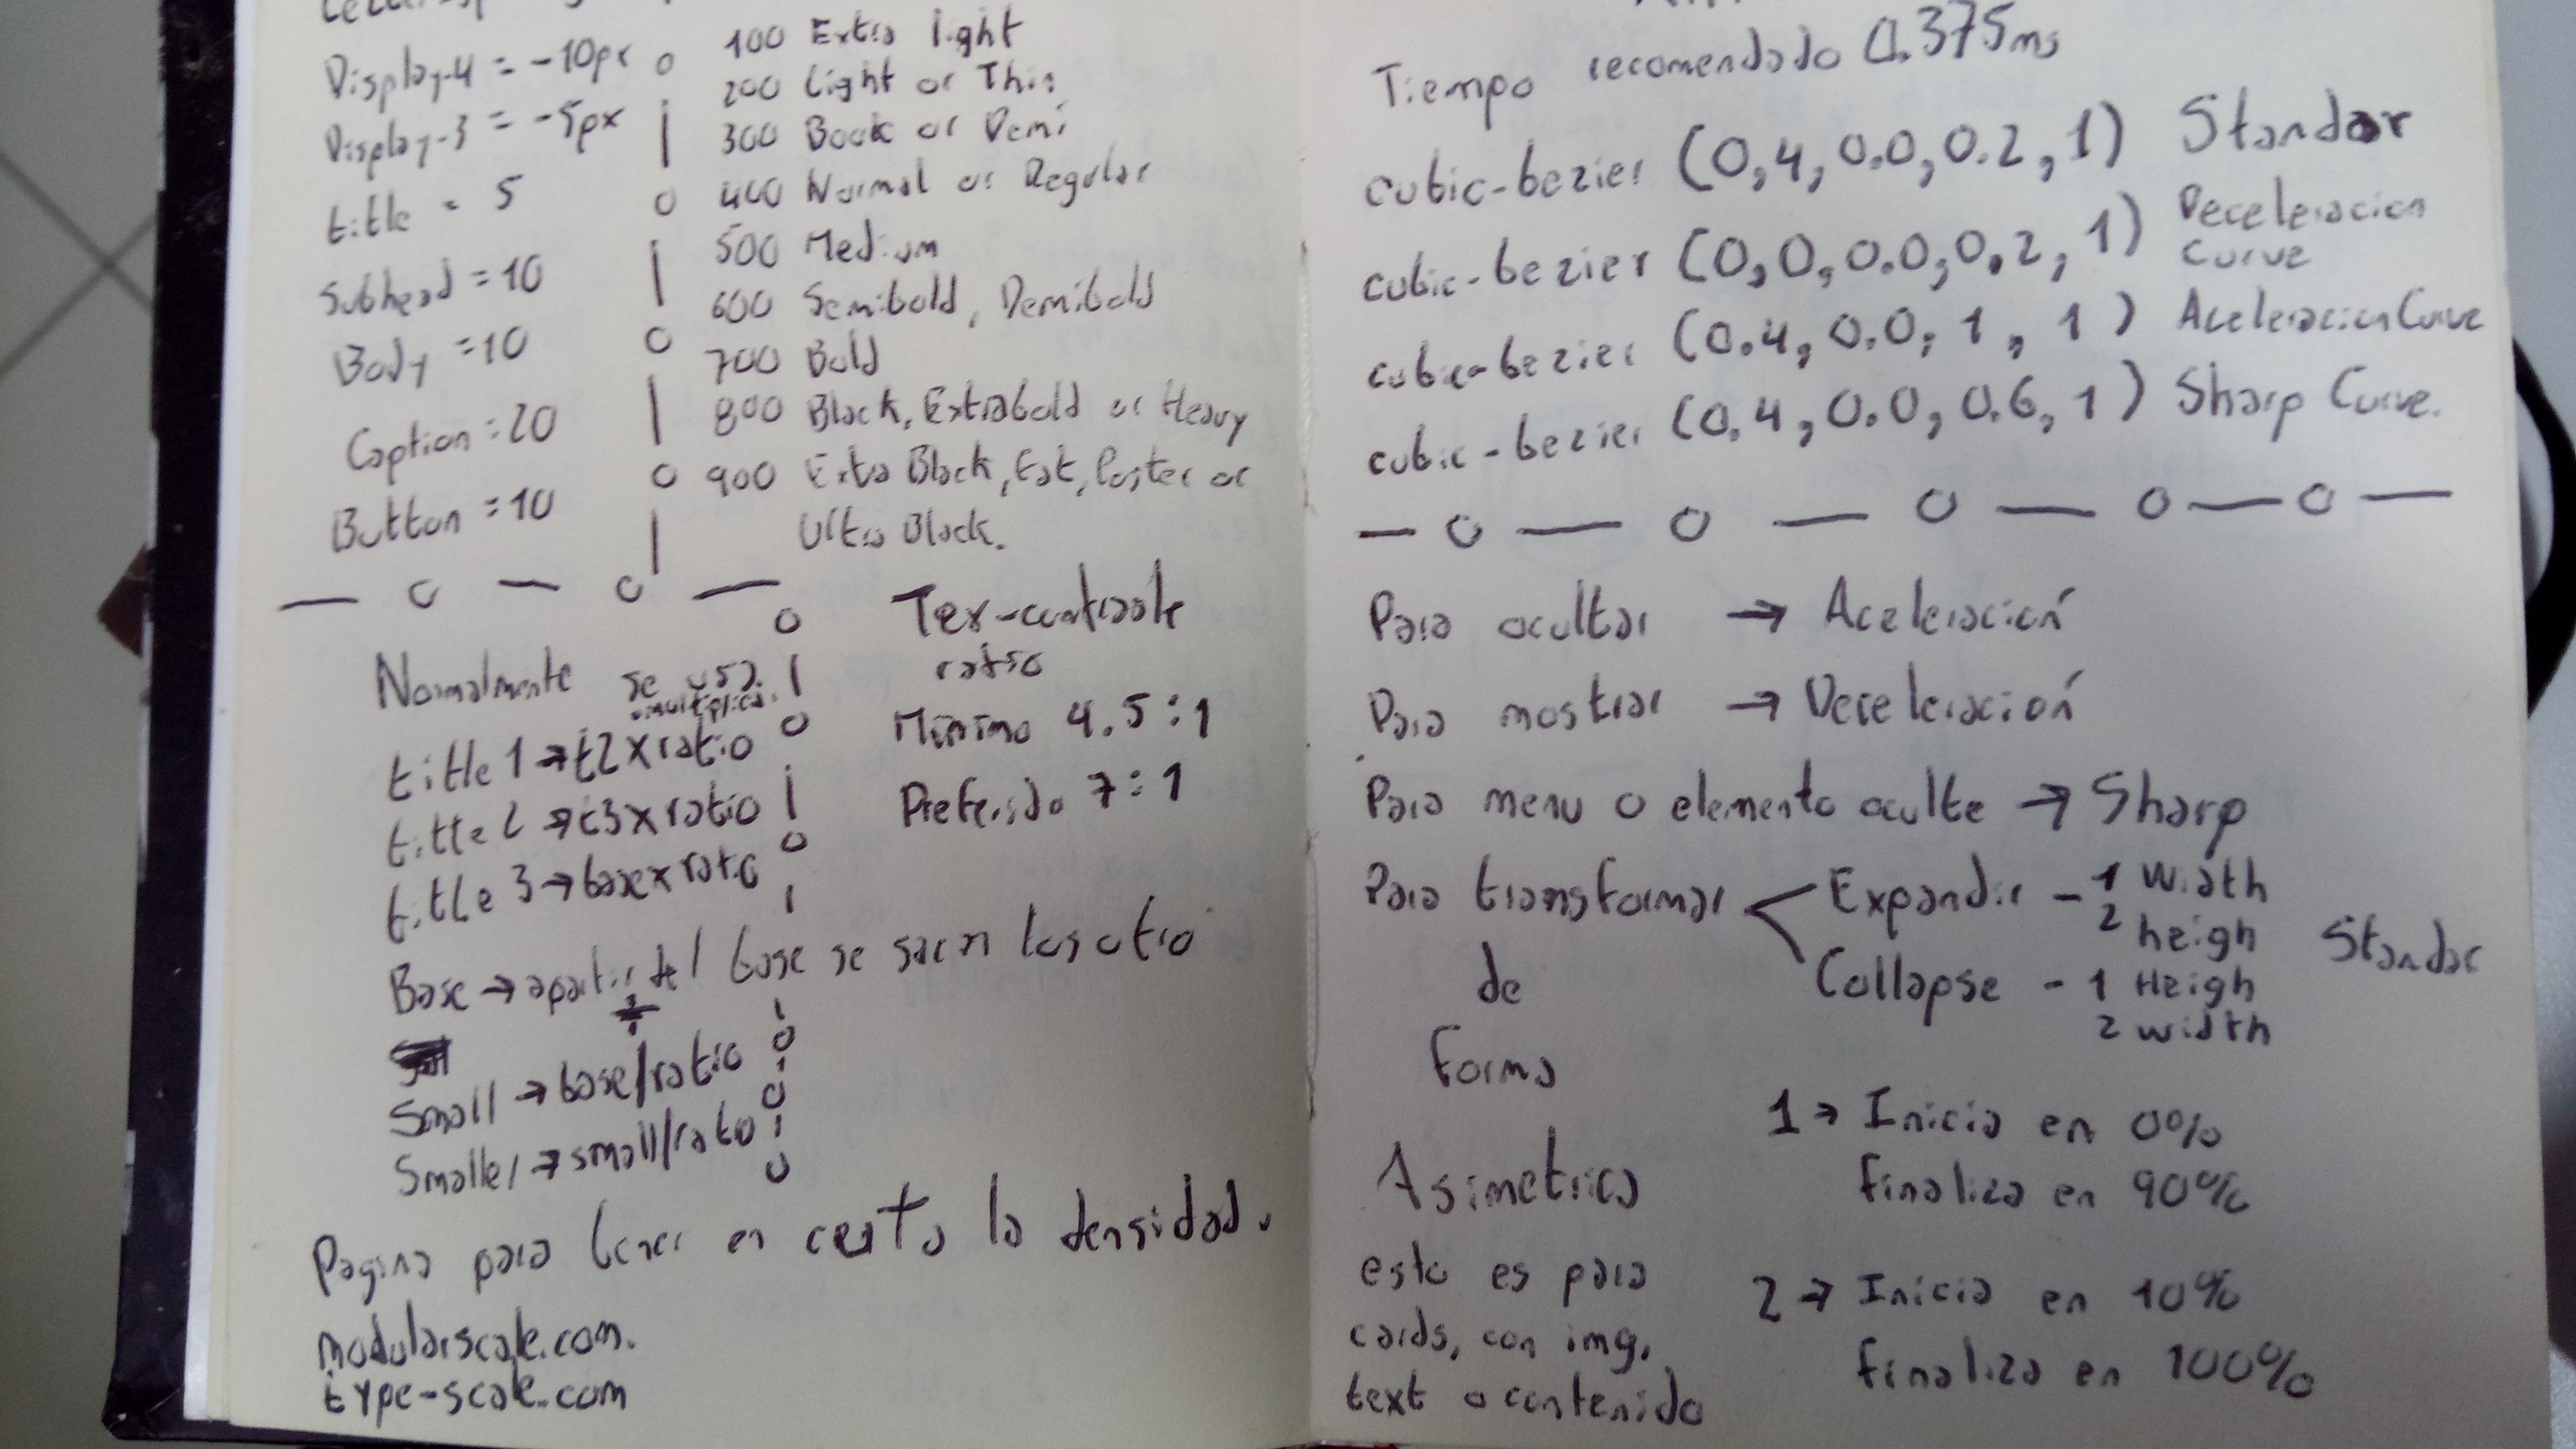 Display-4 = -10px
Display-3 = -5px
title = 5
Subhead = 10
Body = 10
Caption = 20
Button = 10
100 Extra light
200 Light or Thin
300 Book or Demi
400 Normal or Regular
500 Medium
600 Semibold, Demibold
700 Bold
800 Black, Extrabold or Heavy
900 Extra Black, Fat, Poster or
Ultra Black.
Normalmente se usa
multiplica.
title 1 → t2 x ratio
title 2 → t3 x ratio
title 3 → base x ratio
Base → apartir del base se sacan los otro
Small → base/ratio
Smaller → small/ratio
Tex-contraste
ratio
Minimo 4.5:1
Preferido 7:1
Pagina para tener en centa la densidad.
modularscale.com.
type-scale.com
Tiempo recomendado 0.375ms
cubic-bezier (0,4,0.0,0.2,1) Standar
cubic-bezier (0,0,0.0,0.2,1) Deceleracion
Curve
cubic-bezier (0.4,0.0,1,1) Aceleracion Curve
cubic-bezier (0.4,0.0,0.6,1) Sharp Curve.
Para ocultar → Aceleración
Para mostrar → Deceleración
Para menu o elemento oculte → Sharp
Para transformar < Expandir - 1 Width
2 heigh
de Collapse - 1 Heigh Standar
2 width
forma
Asimetrica
esto es para
cards, con img,
text o contenido
1 → Inicia en 0%
finaliza en 90%
2 → Inicia en 10%
finaliza en 100%